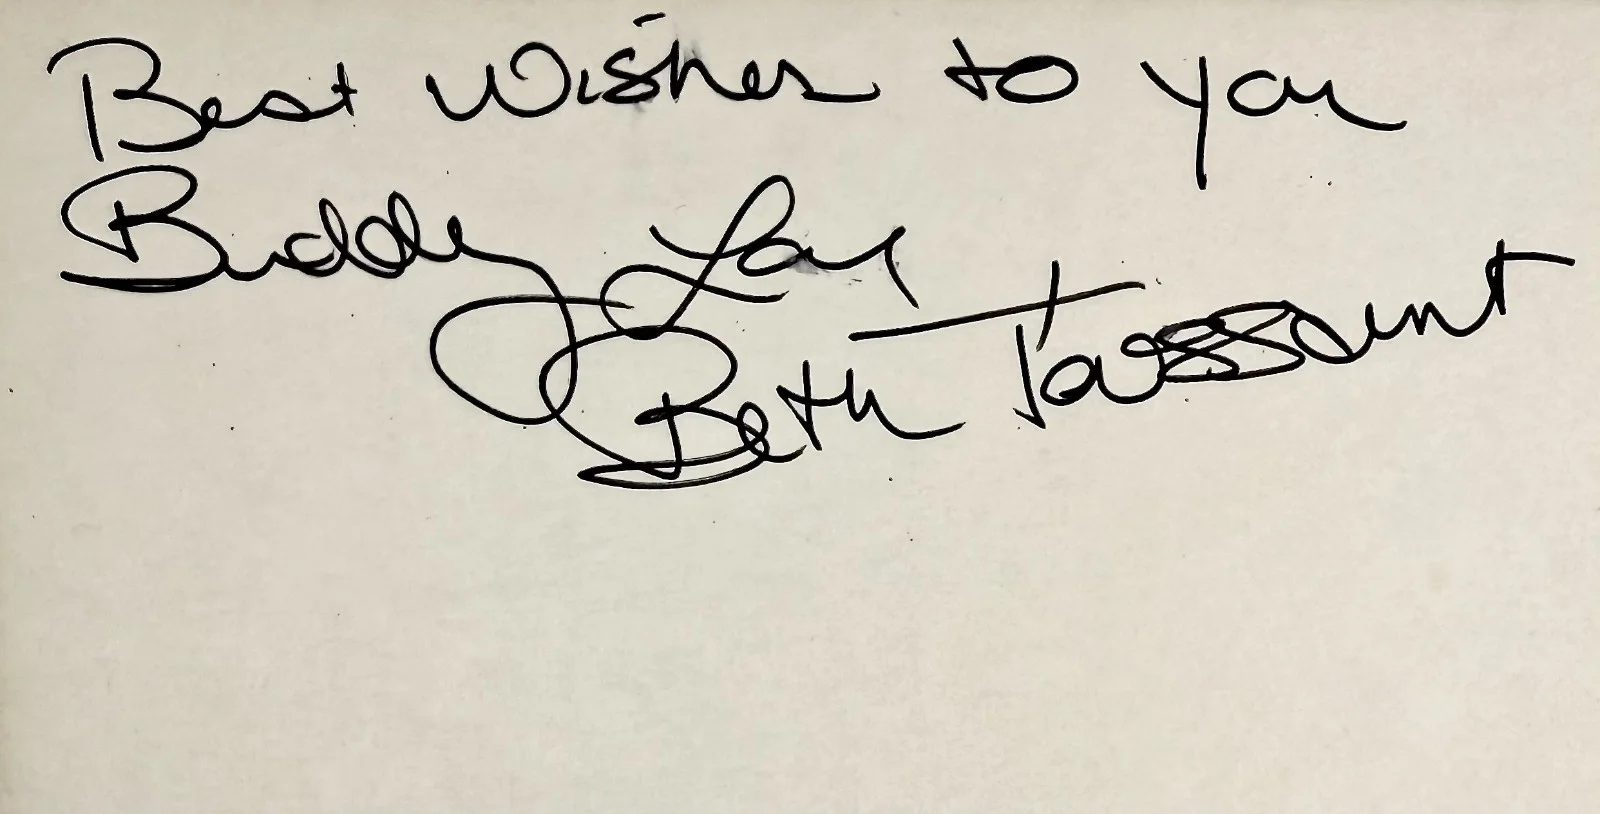 Best Wishes to you
Buddy Love
Beth Toussaint